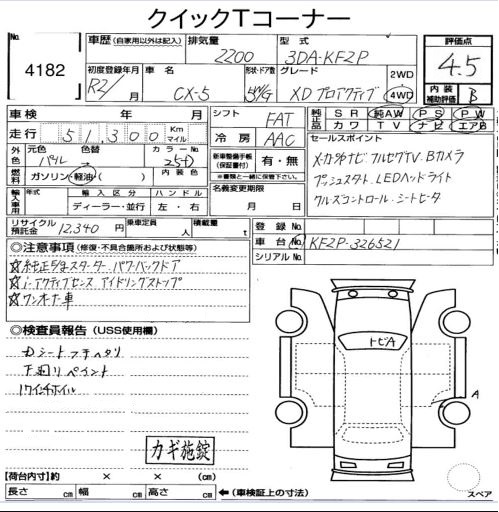 クイックTコーナー
No.
4182
車歴 (自家用以外は記入)
排気量
2200
型式
3DA-KF2P
評価点
4.5
内装補助評価
B
初度登録年月
R2/
車名
CX-5
形状・ドア数
5W/G
グレード
XDプロアクティブ
2WD
4WD
車検 年( )月
走行 51,300 Km マイル
シフト
FAT
冷房
AAC
純正品
SR 純AW PS PW
カワ TV ナビ エアB
外色
元色 色替
パール
カラーNo.
25D
燃料
ガソリン・軽油・( )
内装色
新車整備手帳
(保証書付)
有・無
※書類と一緒に保管下さい。
セールスポイント
メーカー外ナビ フルセグTV. Bカメラ
プッシュスタート LEDヘッドライト
クルーズコントロール シートヒータ
輸入車用
年式
輸入区分
ディーラー・並行
ハンドル
左・右
名義変更期限
月 日
リサイクル預託金
12,340 円
乗車定員
人
積載量
t
登録No.
車台No.
KF2P-326521
シリアルNo.
◎注意事項 (修復・不具合箇所および状態等)
☆純正エンジンスターター パワーバックドア
☆i-アクティブセンス アイドリングストップ
☆ワンオーナー車
◎検査員報告 (USS使用欄)
Dシートフチヘタリ
下廻りペイント
17インチホイル
カギ施錠
トビA
A
【荷台内寸】約 × × (cm)
長さ cm 幅 cm 高さ cm ←(車検証上の寸法)
スペア